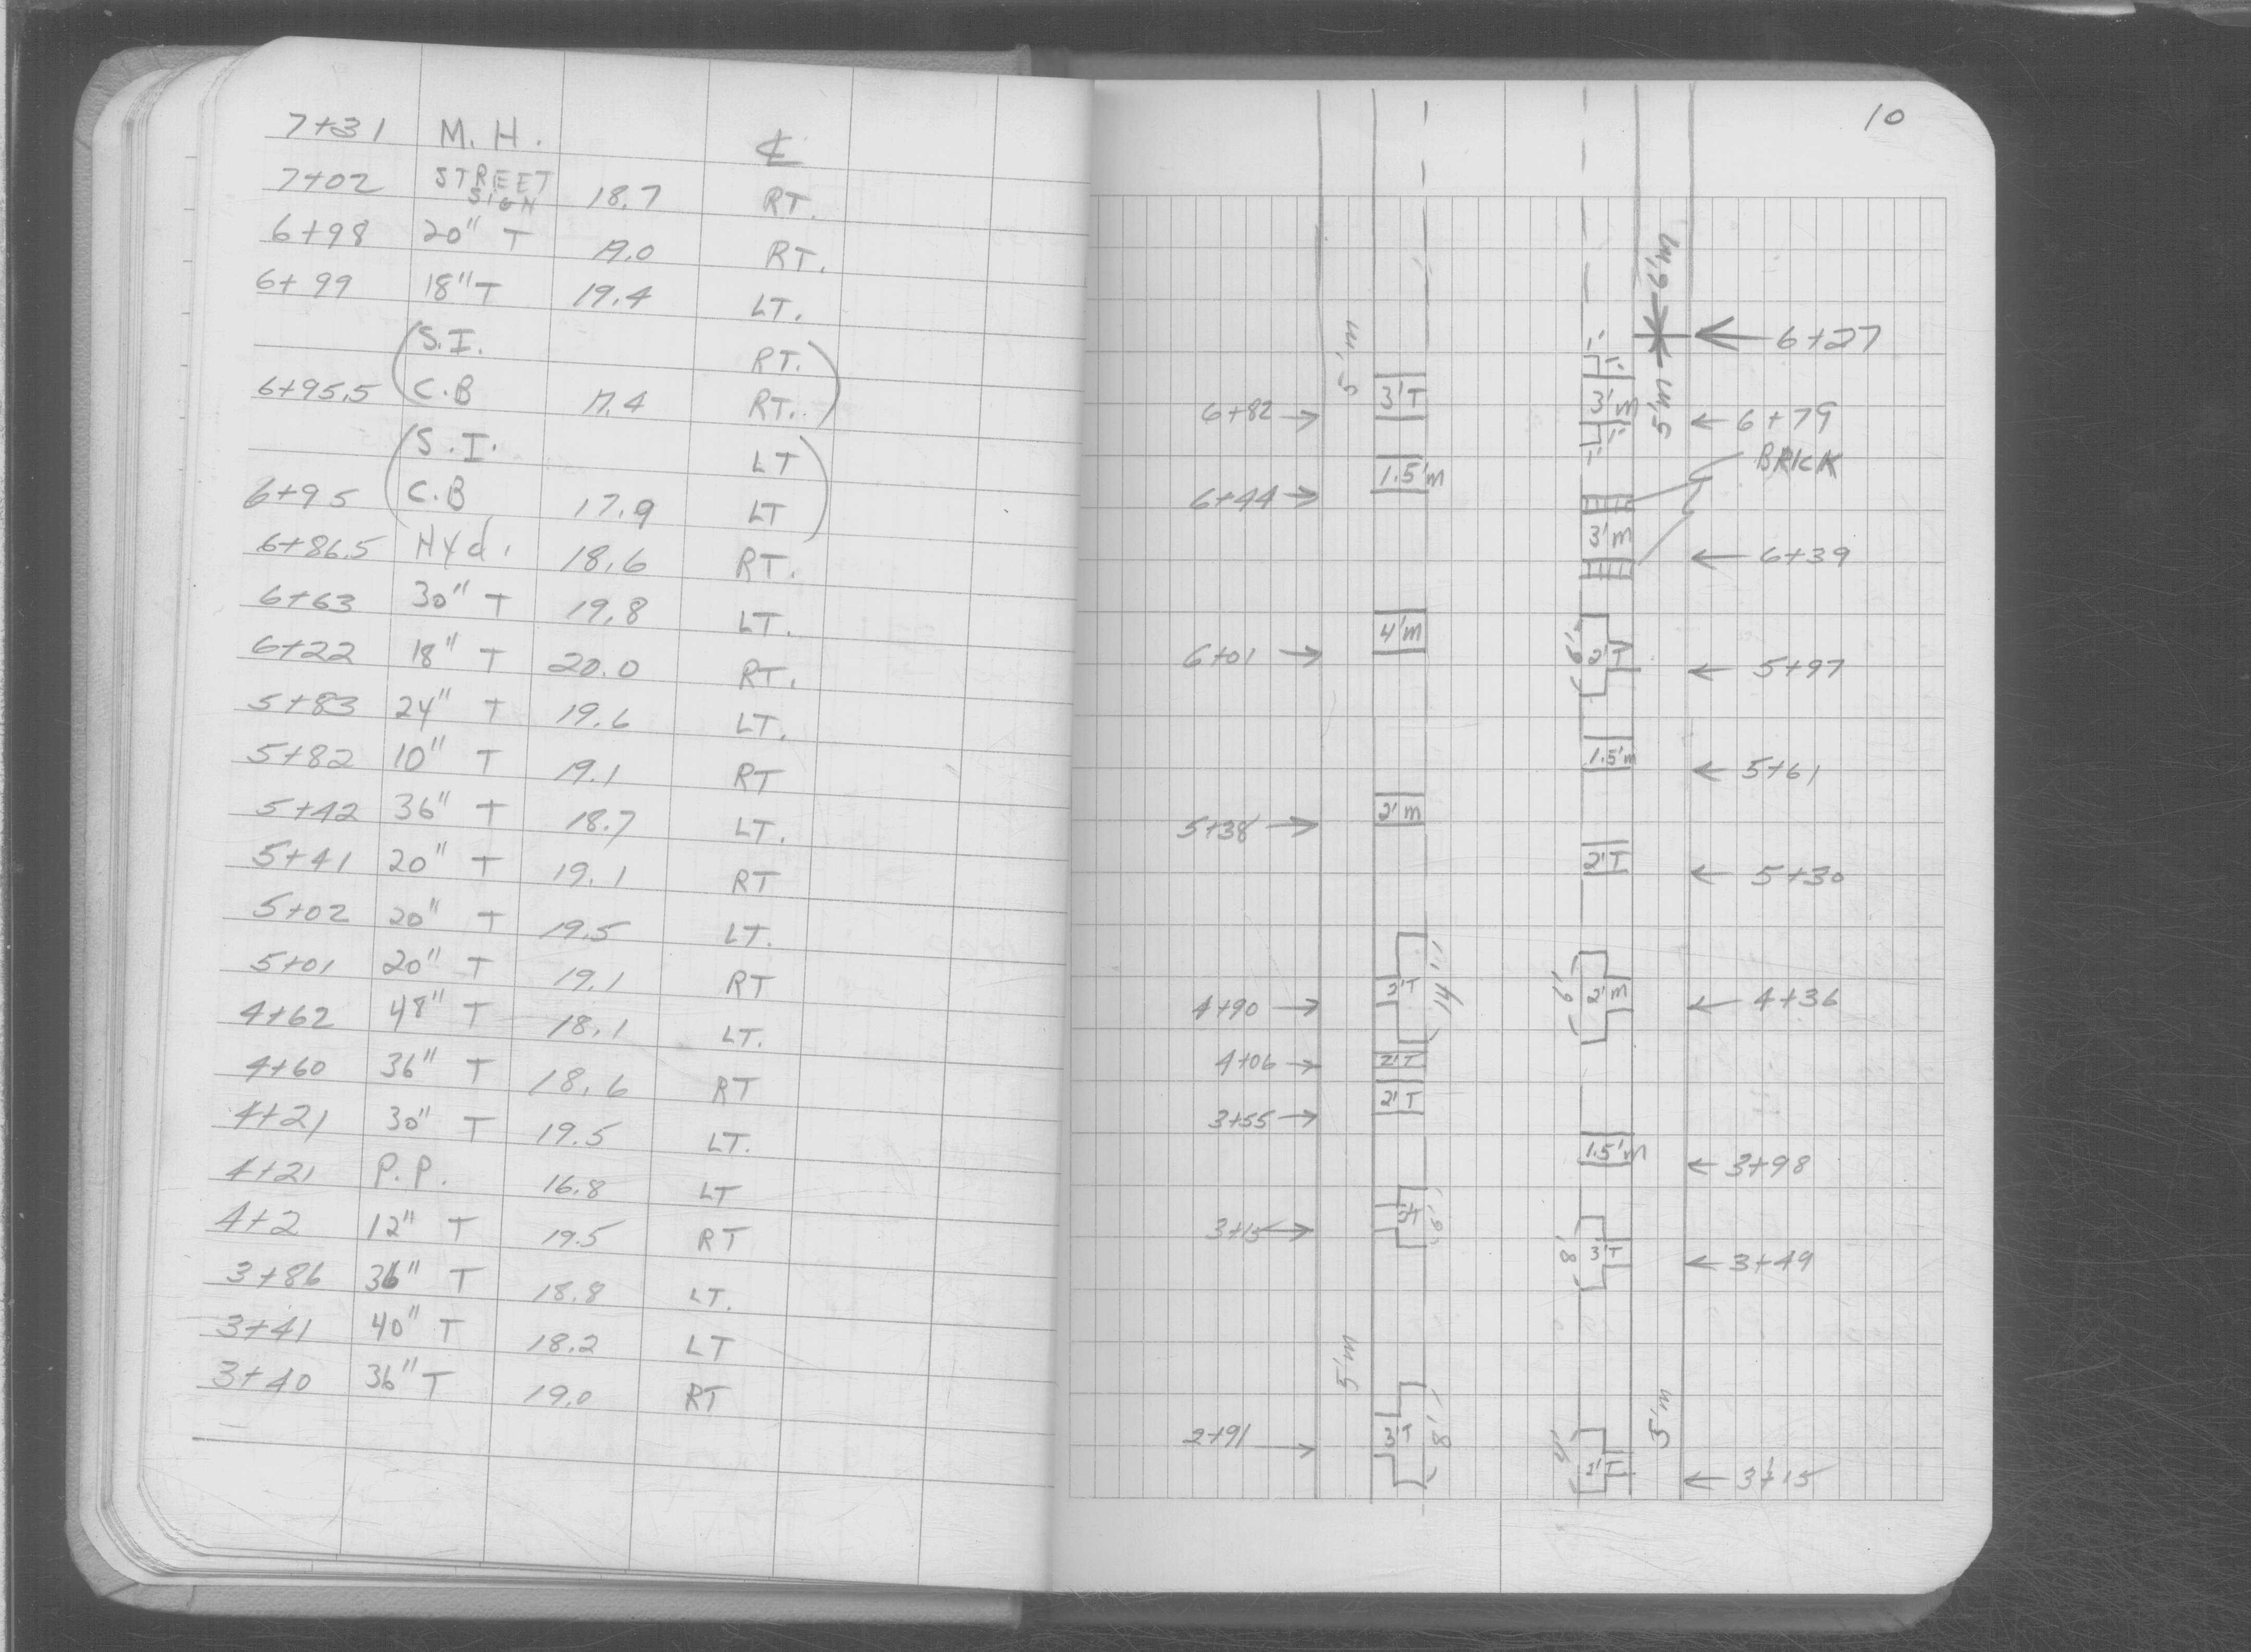 7+31 M.H. ℄
7+02 STREET SIGN 18.7 RT.
6+98 20" T 19.0 RT.
6+99 18" T 19.4 LT.
(S.I. RT.)
6+95.5 (C.B 17.4 RT.)
(S.I. LT)
6+95 (C.B 17.9 LT)
6+86.5 Hyd. 18.6 RT.
6+63 30" T 19.8 LT.
6+22 18" T 20.0 RT.
5+83 24" T 19.6 LT.
5+82 10" T 19.1 RT
5+42 36" T 18.7 LT.
5+41 20" T 19.1 RT
5+02 20" T 19.5 LT.
5+01 20" T 19.1 RT
4+62 48" T 18.1 LT.
4+60 36" T 18.6 RT
4+21 30" T 19.5 LT.
4+21 P.P. 16.8 LT
4+2 12" T 19.5 RT
3+86 36" T 18.8 LT.
3+41 40" T 18.2 LT
3+40 36" T 19.0 RT
10
6'm
5'm ← 6+27
6+82 → 3'T 3'm 5'm ← 6+79
BRICK
6+44 → 1.5'm
3'm ← 6+39
6+01 → 4'm 6' 2'T ← 5+97
1.5'm ← 5+61
5+38 → 2'm
2'T ← 5+30
4+90 → 14' 6' 2'm ← 4+36
4+06 → 2'T
3+55 → 2'T
1.5'm ← 3+98
3+15 → 6'
8' 3'T ← 3+49
5'm 5'm
2+91 → 3'T 8'
4' 2'T ← 3+15